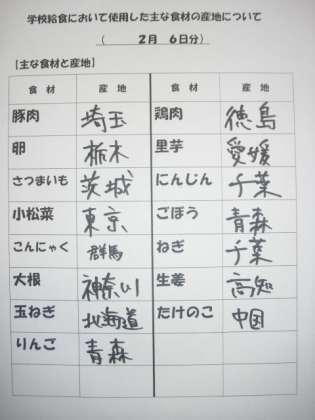 学校給食において使用した主な食材の産地について
（　2月　6日分）
【主な食材と産地】
食　材　産　地　食　材　産　地
豚肉　埼玉　鶏肉　徳島
卵　栃木　里芋　愛媛
さつまいも　茨城　にんじん　千葉
小松菜　東京　ごぼう　青森
こんにゃく　群馬　ねぎ　千葉
大根　神奈川　生姜　高知
玉ねぎ　北海道　たけのこ　中国
りんご　青森